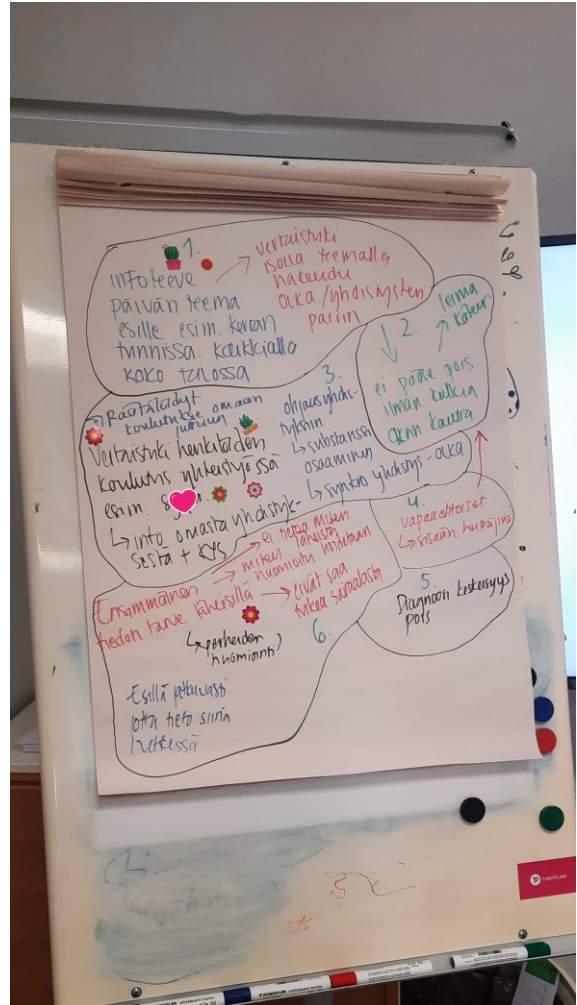 1.
infoteeve
päivän teema
esille esim. kerran
tunnissa. kaikkialla
koko talossa
vertaistuki
isolla teemalla
hakeudu
OLKA/yhdistysten
pariin
2.
leima
käteen
ei pääse pois
ilman kulkia
OLKAn kautta
3.
Räätälöidyt
koulutukse omaan
Vertaistuki henkilöiden
koulutus yhteistyössä
esim.
↳ info omasta yhdistyk-
sestä + KYS
ohjausyhdis-
tyksiin
↳ substanssi
osaaminen
↳ synkro yhdistys-OLKA
4.
vapaaehtoiset
↳ sisään heittäjinä
5.
Diagnoosi keskeisyys
pois
6.
Ensimmäinen
tiedon tarve läheisillä
→ ei tietoa miten
→ miten läheistä
huomioitu hoidetaan
→ eivät saa
tukea sairaalasta
↳ perheiden
huomiointi?
Esillä jatkuvasti
jotta tieto siinä
hetkessä